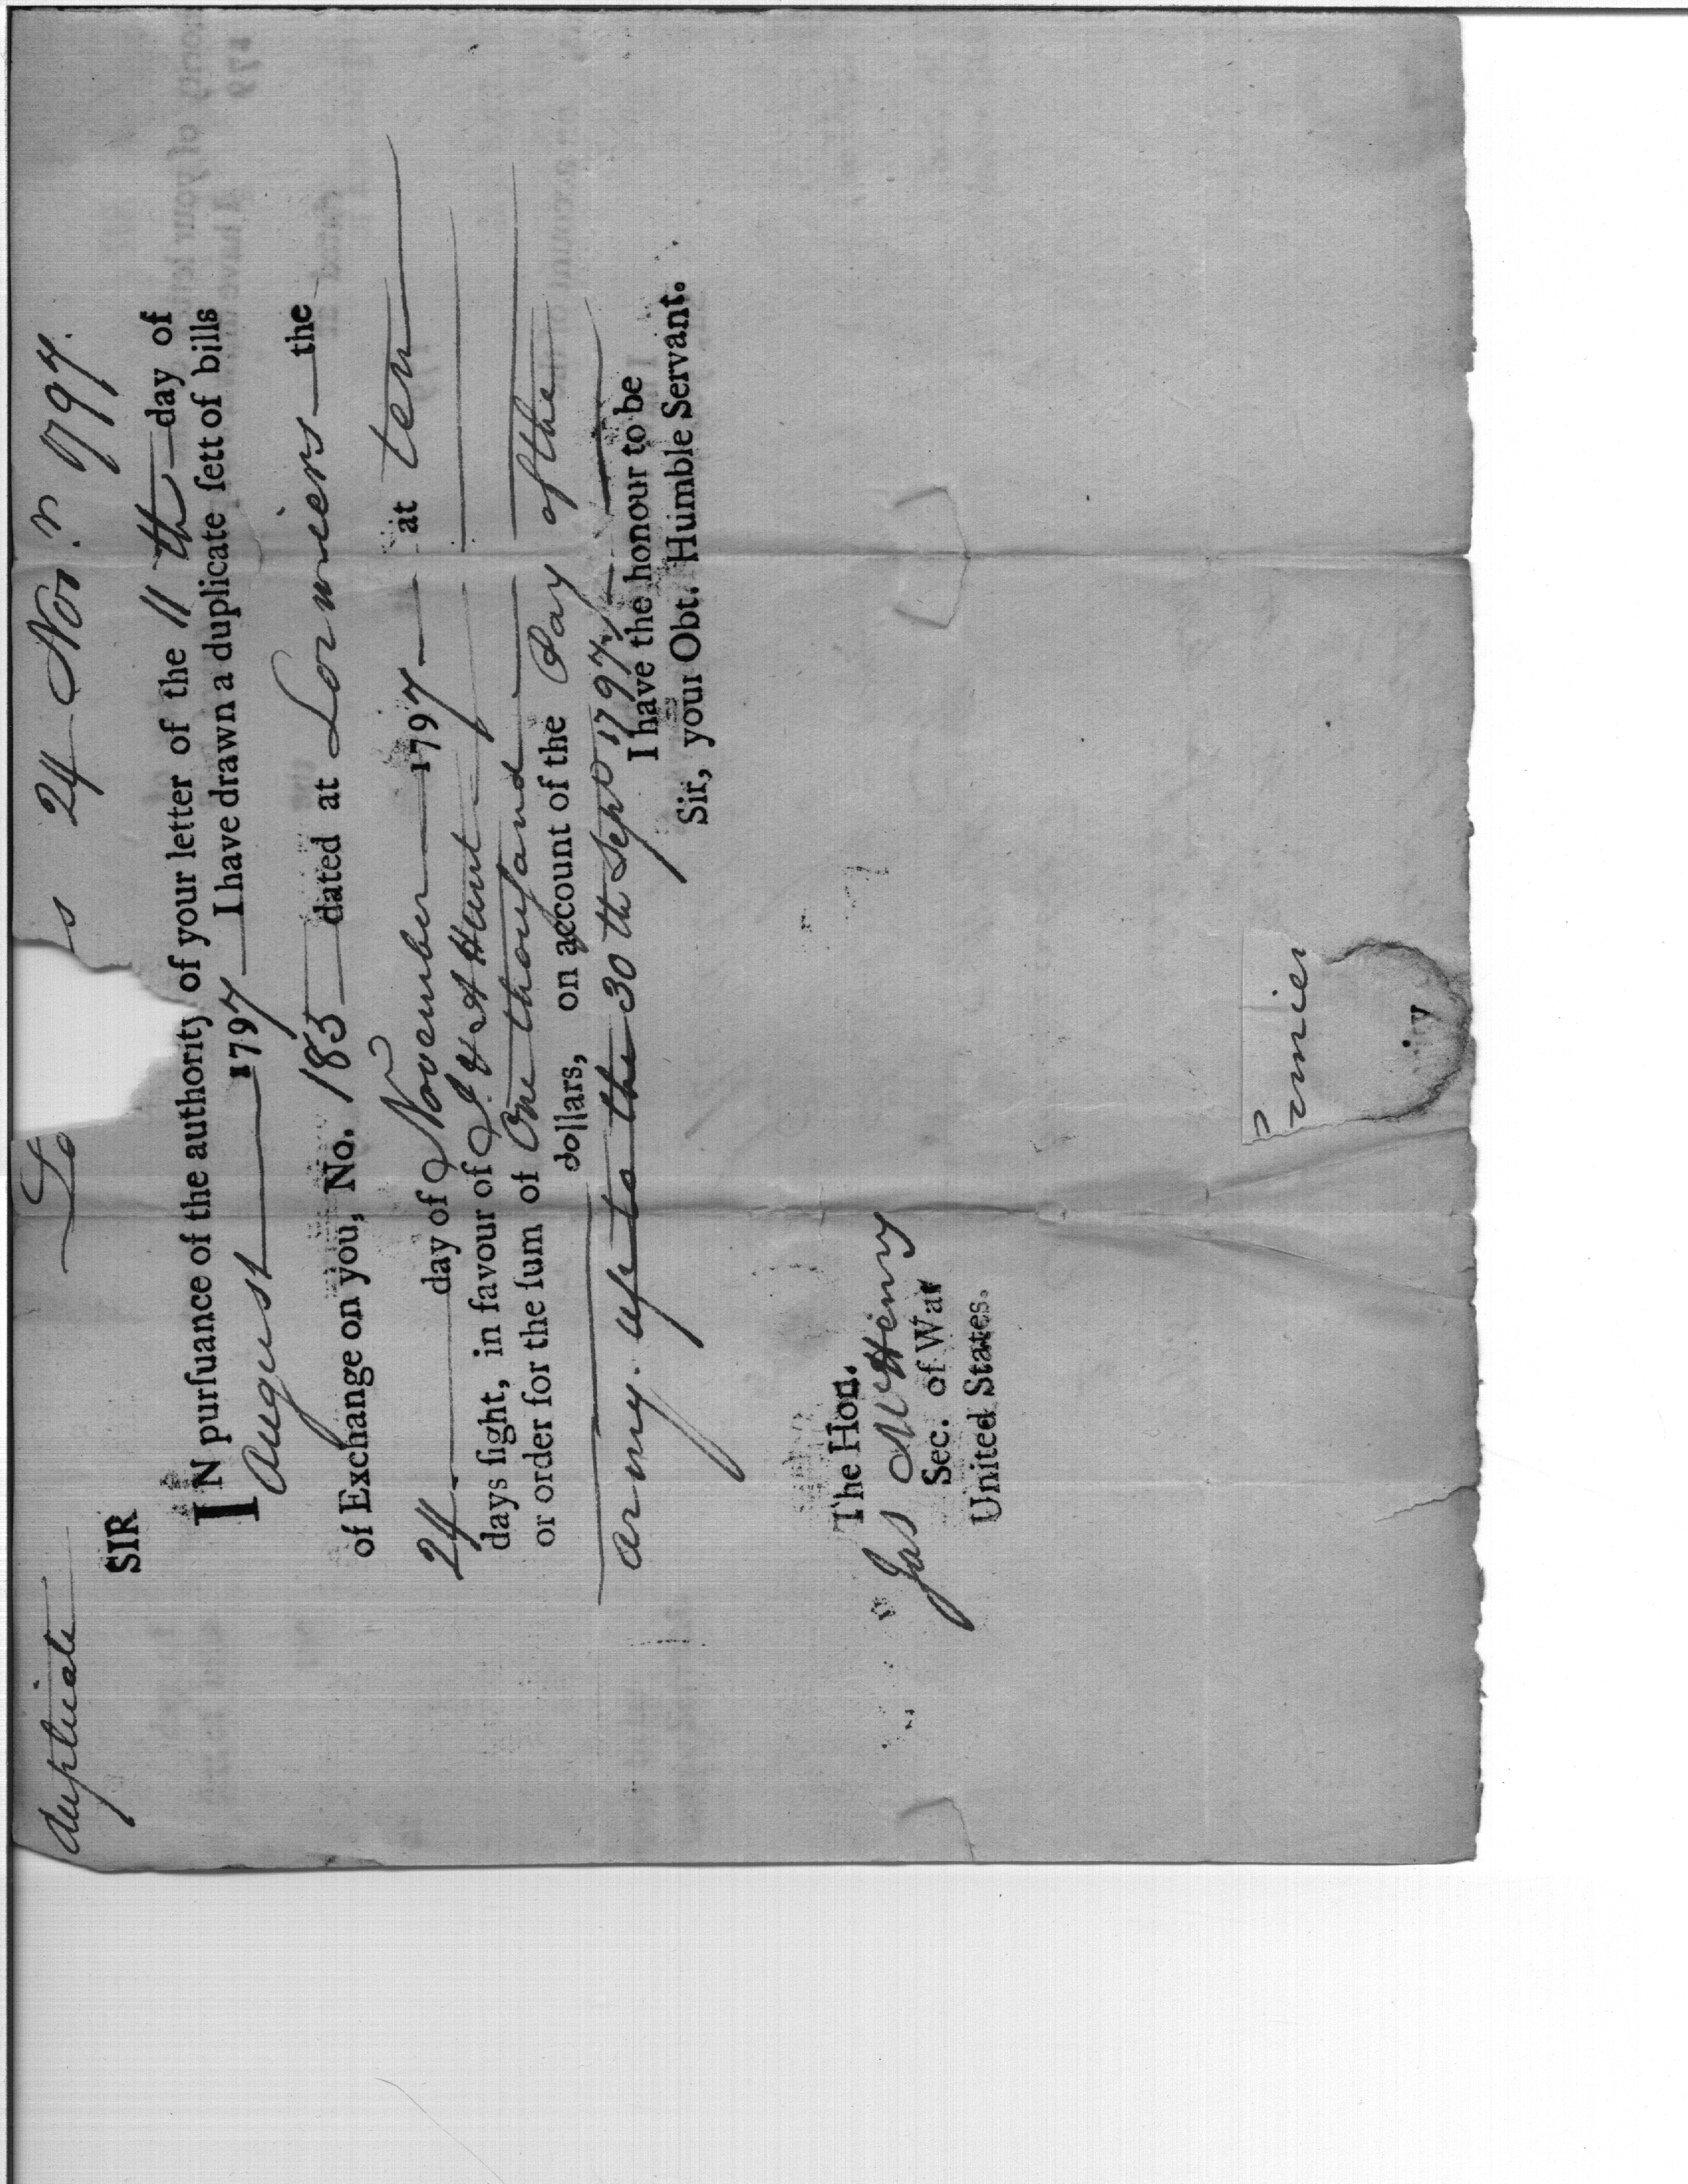 duplicate Lo s 24 Nov.r 1797.
SIR
IN purſuance of the authority of your letter of the 11th day of
August 1797 I have drawn a duplicate ſett of bills
of Exchange on you, No. 185 dated at Lormiers the
24 day of November 1797 at ten
days ſight, in favour of J. & A Hunt
or order for the ſum of One thouſand
dollars, on account of the Pay of the
army. up to the 30th Sepr 1797.
I have the honour to be
Sir, your Obt. Humble Servant.
The Hon.
Jas McHenry
Sec. of War
United States.
rmier